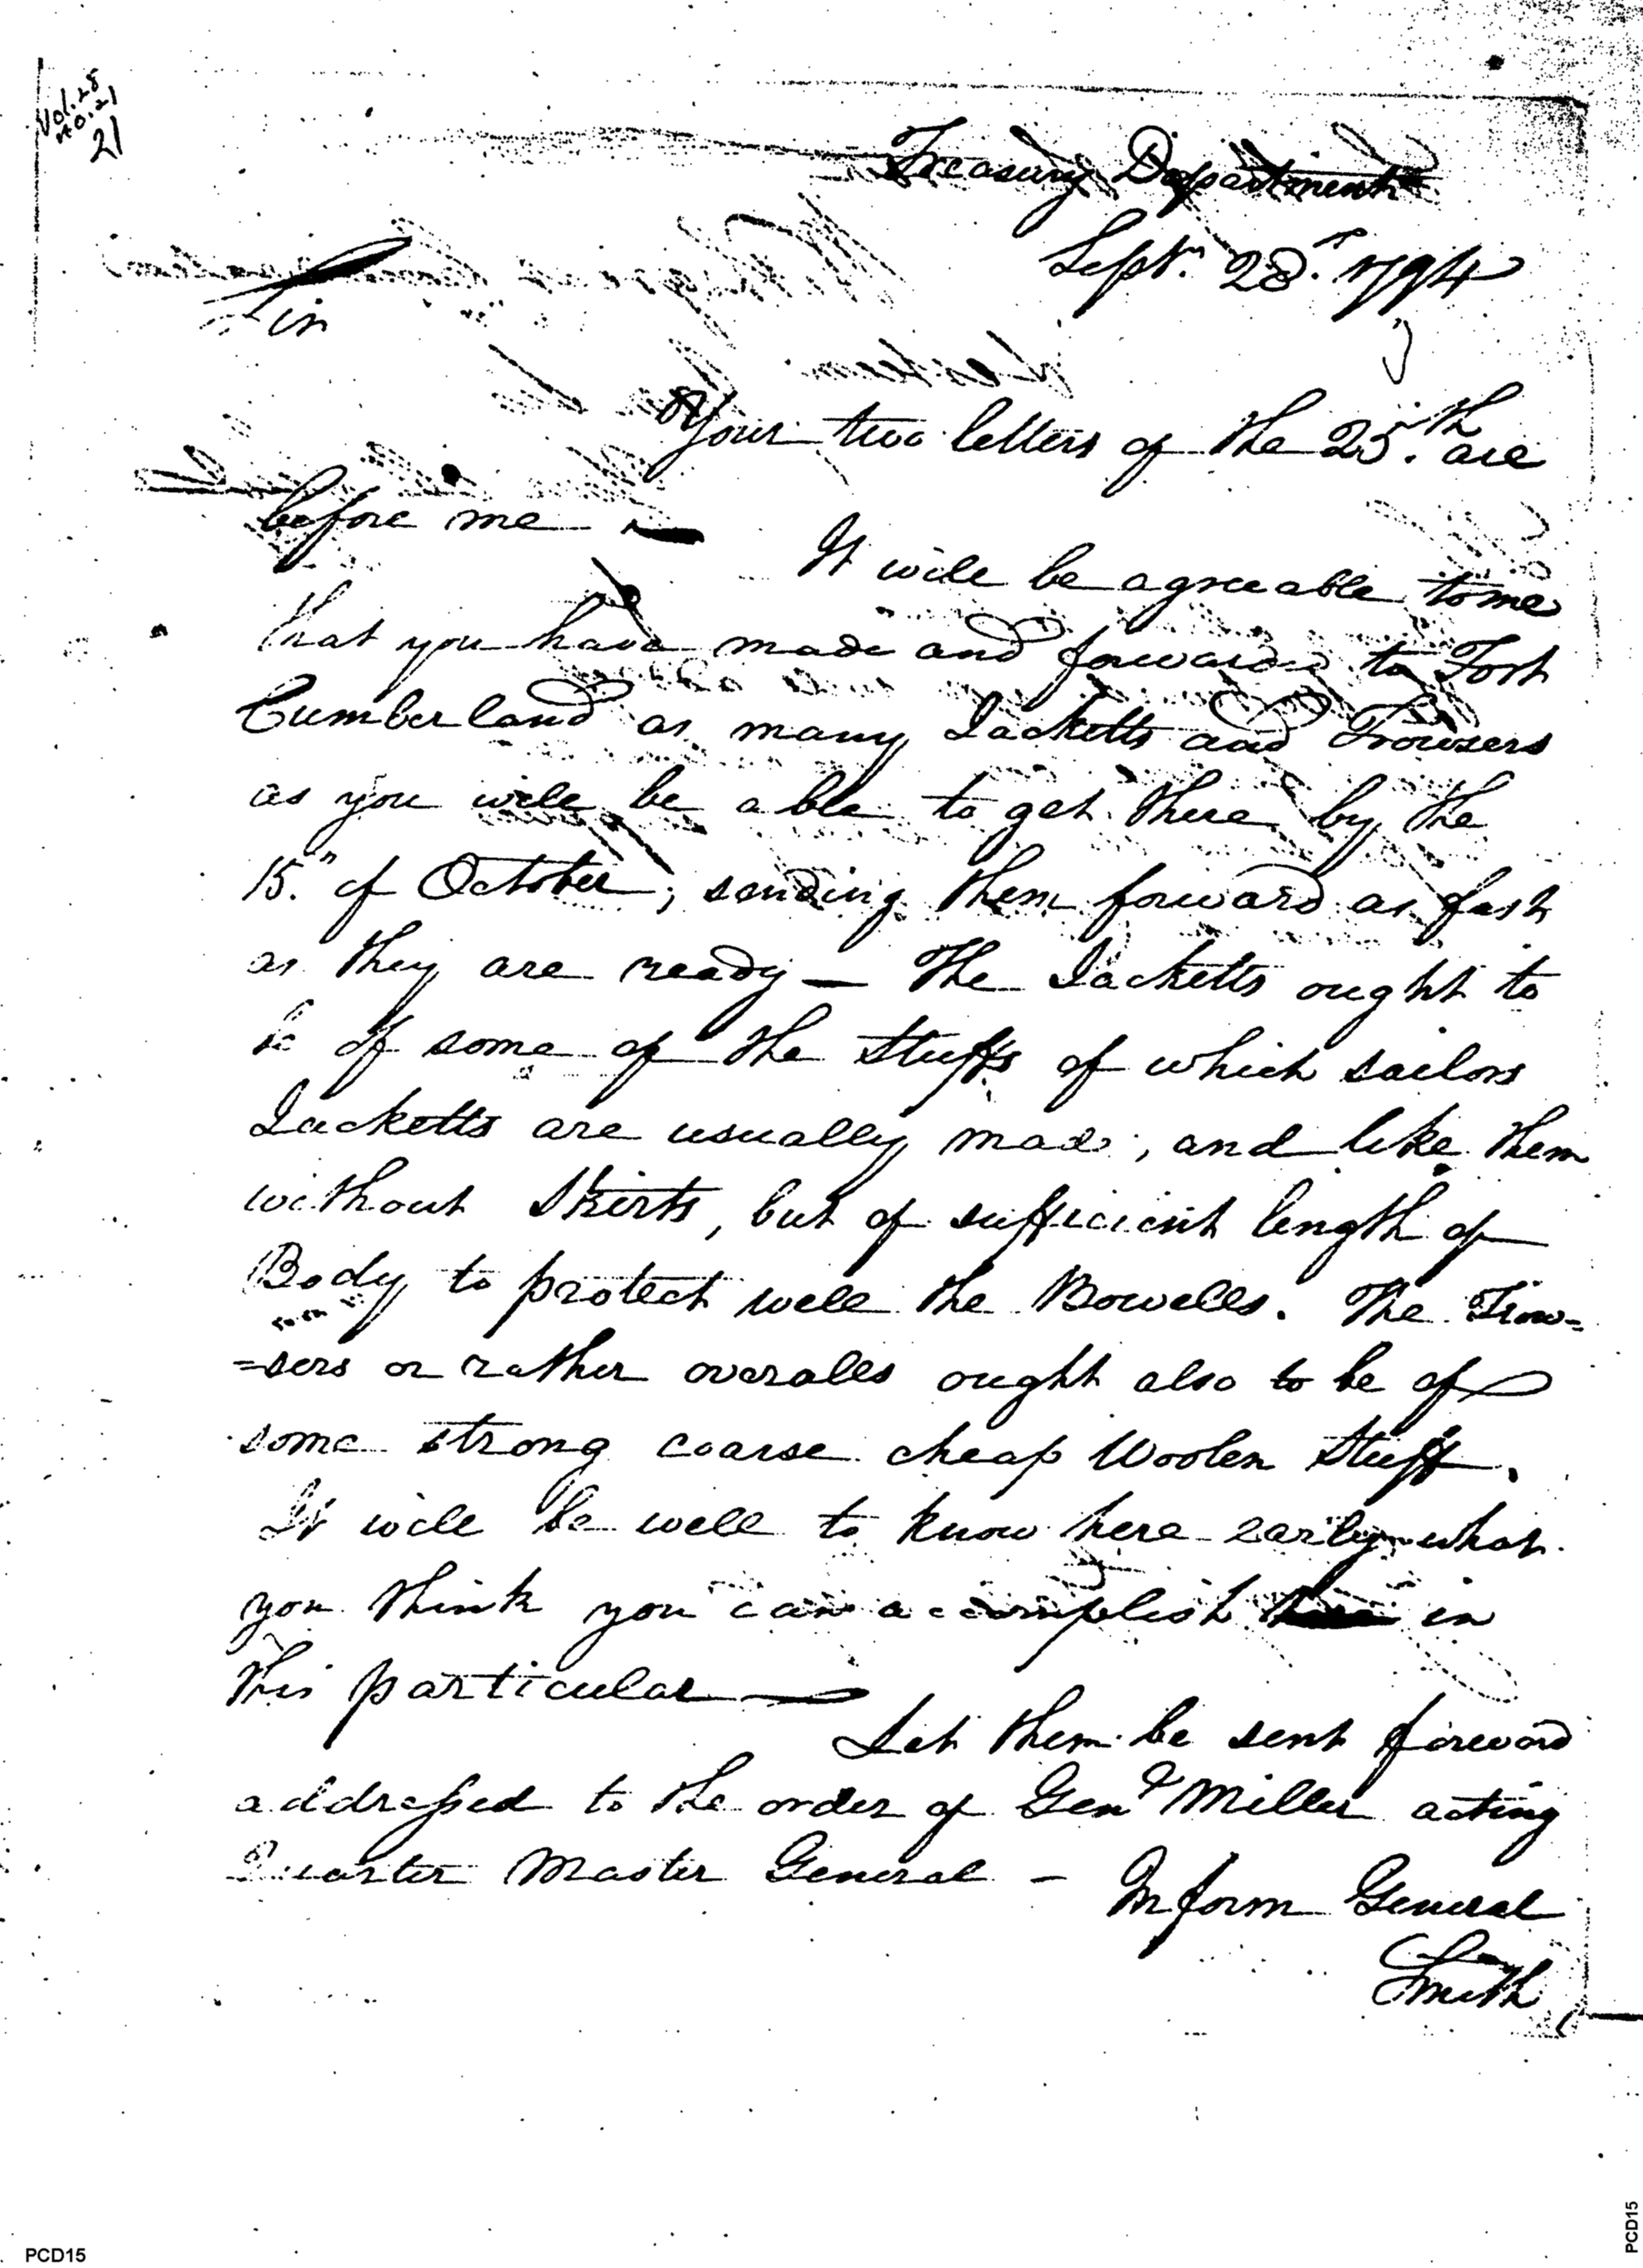 Vol. 28
No. 21
21
Treasury Department
Sept. 28. 1794
Sir
Your two letters of the 25.th are
before me —
It will be agreeable to me
that you have made and forwarded to Fort
Cumberland as many Jacketts and Trowsers
as you will be able to get there by the
15." of October; sending them forward as fast
as they are ready — The Jacketts ought to
be of some of the stuffs of which sailors
Jacketts are usually made, and like them
without Skirts, but of sufficient length of
Body to protect well the Bowells. The Trow=
=sers or rather overalls ought also to be of
some strong coarse cheap Woolen stuff.
It will be well to know here early what
you think you can accomplish in
this particular —
Let them be sent forward
addressed to the order of Genl Miller acting
Quarter Master General - Inform General
Smith
PCD15
PCD15